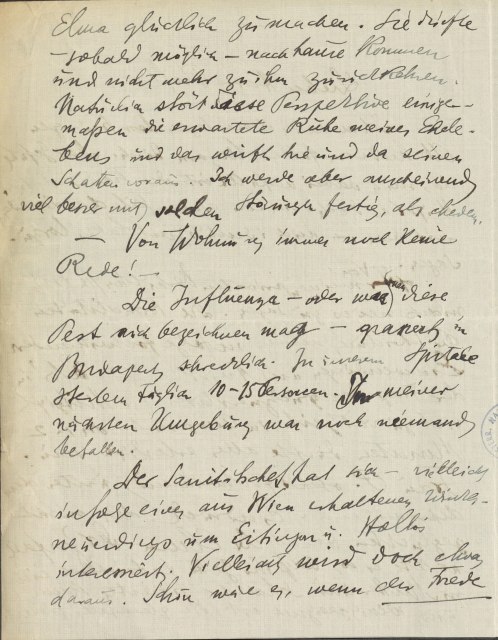 Elma glücklich zu machen. Sie dürfte
– sobald möglich – nach hause kommen
und nicht mehr zu ihm zurückkehren.
Natürlich stört diese Perspektive einiger-
maßen die erwartete Ruhe meines Ehele-
bens und das wirft hie und da seinen
Schatten voraus. Ich werde aber anscheinend
viel besser mit solchen Störungen fertig, als ehedem.
– Von Wohnung immer noch keine
Rede! –
Die Influenza – oder wie man diese
Pest auch bezeichnen mag – grassiert in
Budapest schrecklich. In unserem Spitale
sterben täglich 10–15 Personen. In meiner
nächsten Umgebung war noch niemand
befallen.
Der Sanitätschef hat sich – vielleicht
infolge eines aus Wien erhaltenen Winkes –
neuerdings um Eitingon u. Hollós
interessiert. Vielleicht wird doch etwas
daraus. Schön wäre es, wenn der Friede